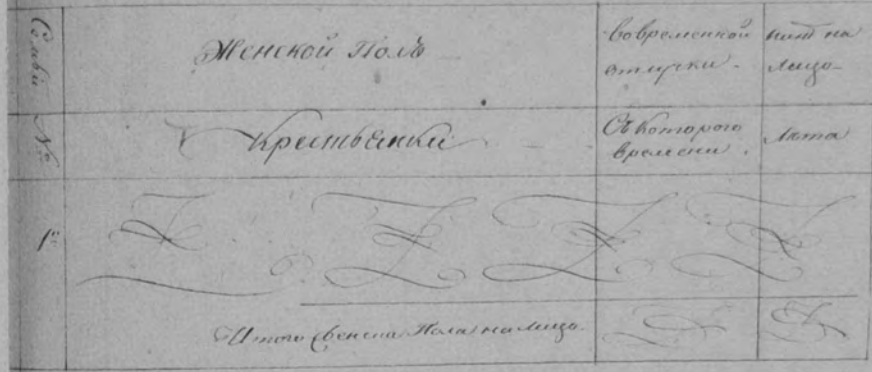 Семьи №
Женской Полъ
Вовременной
отлучки.
нынѣ на
лицо
Крестьянки
Съ Котораго
времени.
Лѣта
1й
Итого Женска Пола на лицо.